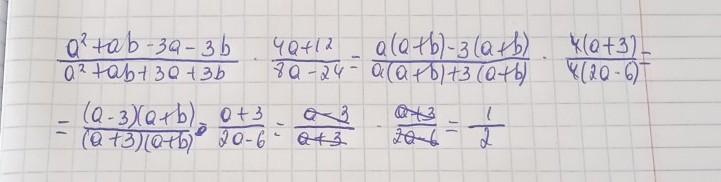 a² + ab - 3a - 3b / a² + ab + 3a + 3b · 4a + 12 / 8a - 24 = a(a+b) - 3(a+b) / a(a+b) + 3(a+b) · 4(a+3) / 4(2a-6) =
= (a-3)(a+b) / (a+3)(a+b) · a+3 / 2a-6 = a-3 / a+3 · a+3 / 2a-6 = 1 / 2